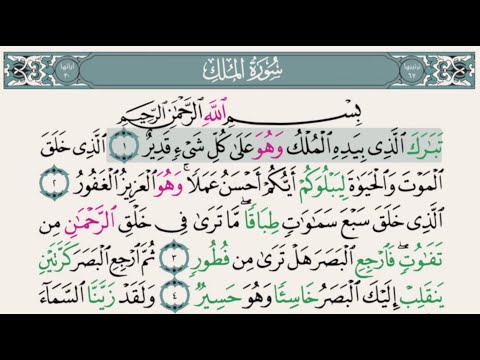 ترتيبها ٦٧ سُورَةُ الْمُلْكِ آياتها ٣٠
بِسْمِ اللَّهِ الرَّحْمَٰنِ الرَّحِيمِ
تَبَارَكَ الَّذِي بِيَدِهِ الْمُلْكُ وَهُوَ عَلَىٰ كُلِّ شَيْءٍ قَدِيرٌ ١ الَّذِي خَلَقَ
الْمَوْتَ وَالْحَيَاةَ لِيَبْلُوَكُمْ أَيُّكُمْ أَحْسَنُ عَمَلًا ۚ وَهُوَ الْعَزِيزُ الْغَفُورُ ٢
الَّذِي خَلَقَ سَبْعَ سَمَاوَاتٍ طِبَاقًا ۖ مَّا تَرَىٰ فِي خَلْقِ الرَّحْمَٰنِ مِن
تَفَاوُتٍ ۖ فَارْجِعِ الْبَصَرَ هَلْ تَرَىٰ مِن فُطُورٍ ٣ ثُمَّ ارْجِعِ الْبَصَرَ كَرَّتَيْنِ
يَنقَلِبْ إِلَيْكَ الْبَصَرُ خَاسِئًا وَهُوَ حَسِيرٌ ٤ وَلَقَدْ زَيَّنَّا السَّمَاءَ